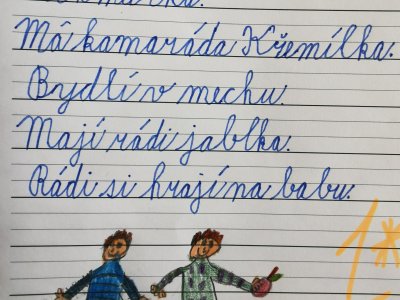 Má kamaráda Křemílka.
Bydlí v mechu.
Mají rádi jablka.
Rádi si hrají na babu.
1*